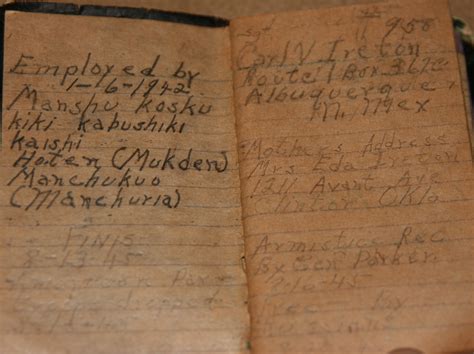 Employed by
1-16-1942
Manshu Kosku
kiki kabushiki
kaishi
Hoten (Mukden)
Manchukuo
(Manchuria)
FINIS
8-13-45
dropped
Sgt 958
Carl V Ireton
Route 1 Box 367C
Albuquerque,
N. Mex
Mothers Address
Mrs Eda Ireton
1211 Avant Ave
Clinton Okla
Armistice Rec
By Gen Parker
8-16-45